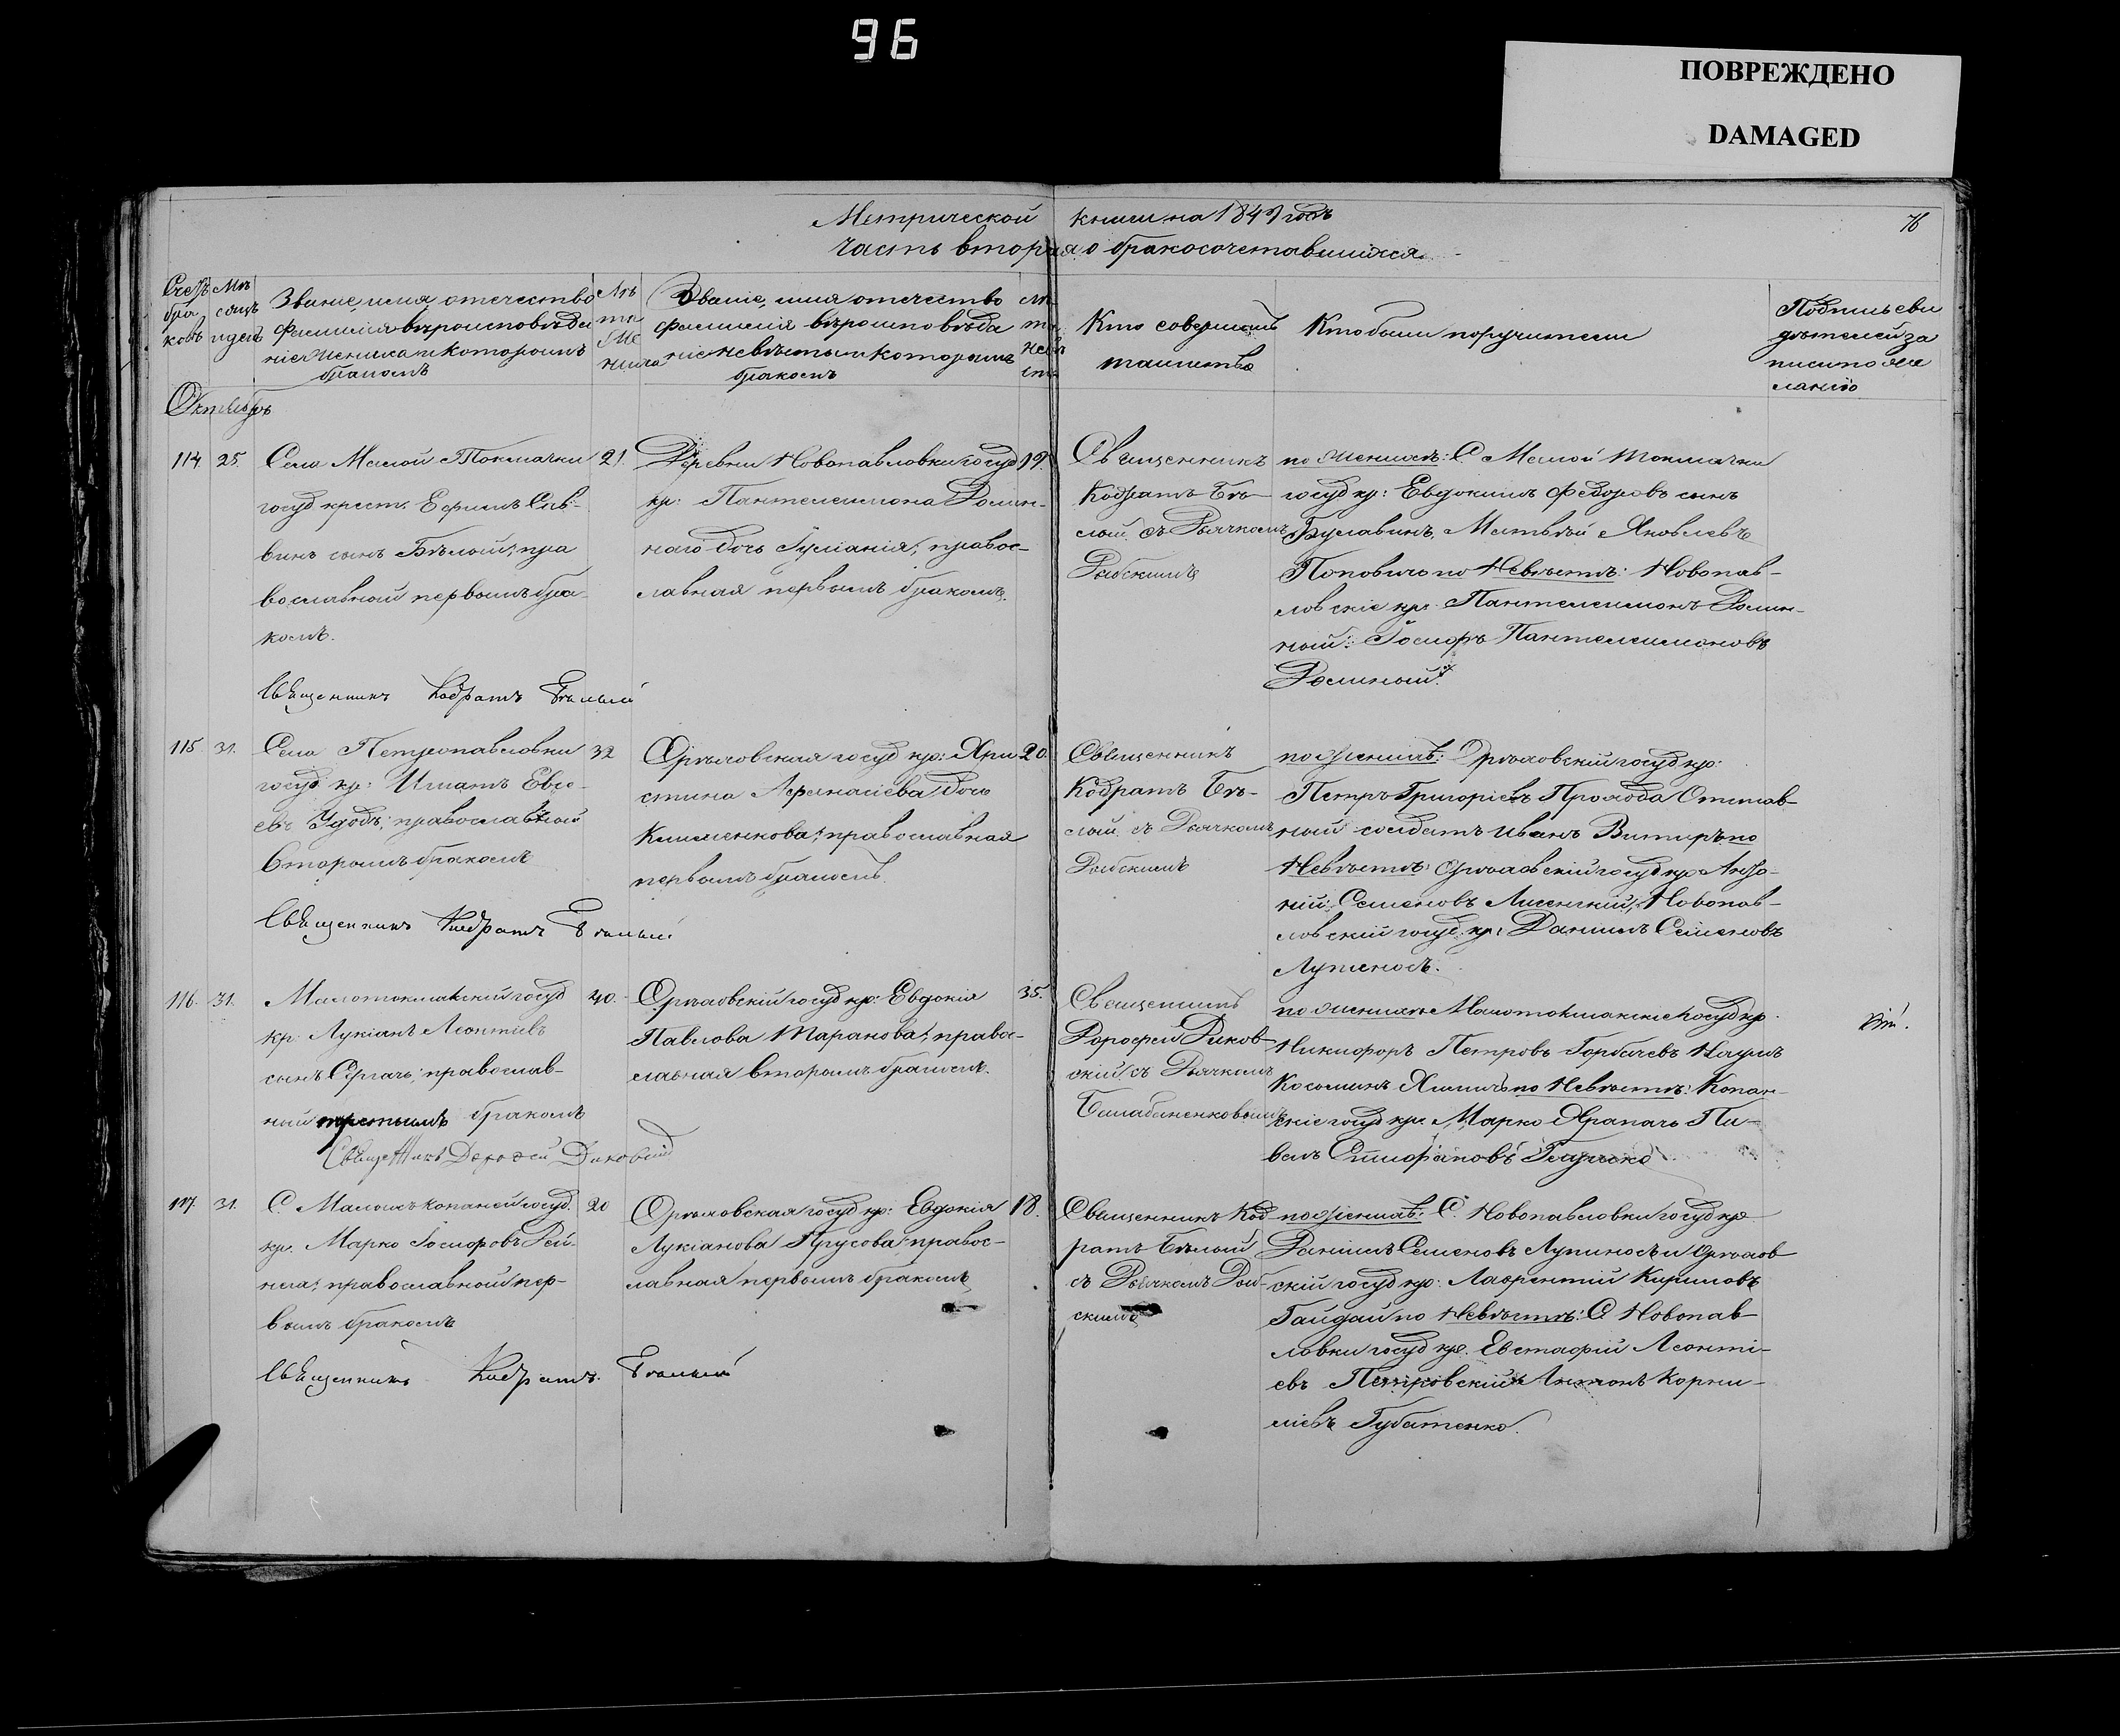 96
ПОВРЕЖДЕНО
DAMAGED
Метрической книги на 1849 годъ
76
Часть вторая о бракосочетавшихся.
Счетъ браковъ
Мѣсяцъ и день
Званіе, имя, отечество
фамилія вѣроисповѣда
ніе жениха и которымъ
бракомъ
Лѣта Жениха
Званіе, имя отечество
фамилія вѣроисповѣда
ніе невѣсты и которымъ
бракомъ
Лѣта невѣсты
Кто совершалъ
таинство
Кто были поручители
Подпись сви
дѣтелей за
писи по же
ланію
Октябрь
114. 25.
Села Малой Токмачки
госуд крест. Ефимъ Сав-
винъ сынъ Бѣлый; пра
вославный первымъ бра-
комъ.
21.
Деревни Новопавловки госуд
кр: Пантелеимона
наго дочь ; правос-
лавная первымъ бракомъ.
19.
Священникъ
Кодратъ Бѣ-
лый съ Дьячкомъ
по женихѣ: С. Малой Токмачки
госуд кр: Евдокимъ Федоровъ сынъ
Буславинъ, Матвѣй Яковлевъ
Поповичъ по Невѣстѣ: Новопав-
ловскіе кр. Пантелеимонъ
ный: Іосифъ Пантелеимоновъ
Священникъ Кодратъ Бѣлый
115. 31.
Села Петропавловки
госуд кр: Игнатъ Евсе-
евъ Удодъ; православный
вторымъ бракомъ
32
Орѣховская госуд кр: Хри
стина Афанасіева дочь
Клименкова; православная
первымъ бракомъ.
20.
Священникъ
Кодратъ Бѣ-
лый съ Дьячкомъ
по женихѣ: Орѣховскій госуд кр:
Петръ Григоріевъ Отстав-
ный солдатъ Иванъ по
Невѣстѣ: Орѣховскій госуд кр
ній: Семеновъ Новопав-
ловскій госуд. кр: Даниилъ Семеновъ
Лупиносъ.
Священникъ Кодратъ Бѣлый
116. 31.
Малотокмакскій госуд
кр. Лукіанъ Леонтіевъ
сынъ Сергачъ; православ-
ный третьимъ бракомъ
40.
Орѣховскій госуд кр: Евдокія
Павлова Таранова; правос-
лавная вторымъ бракомъ.
35.
Священникъ
Дорофей Диков-
скій съ Дьячкомъ
по женихѣ Малотокмакскіе госуд кр.
Никифоръ Петровъ Горбачевъ Наумъ
Косьминъ по Невѣстѣ: Копан-
скіе госуд кр. Марко Храпачъ Па-
велъ
Священникъ Дорофей Диковскій
117. 31.
С. Малыхъ копаней госуд.
кр. Марко Іосифовъ Рей-
нега; православный пер-
вымъ бракомъ
20
Орѣховская госуд кр: Евдокія
Лукіанова правос-
лавная первымъ бракомъ
18.
Священникъ Код
ратъ Бѣлый
съ Дьячкомъ
по женихѣ: С. Новопавловки госуд кр
Даніилъ Семеновъ Лупиносъ и Орѣхов
скій госуд кр: Лаврентій Кириловъ
Гайдай по Невѣстѣ: С. Новопав
ловки госуд кр. Евстафій Леонті-
евъ Петровскій Антонъ Корни-
ліевъ Губатенко.
Священникъ Кодратъ Бѣлый